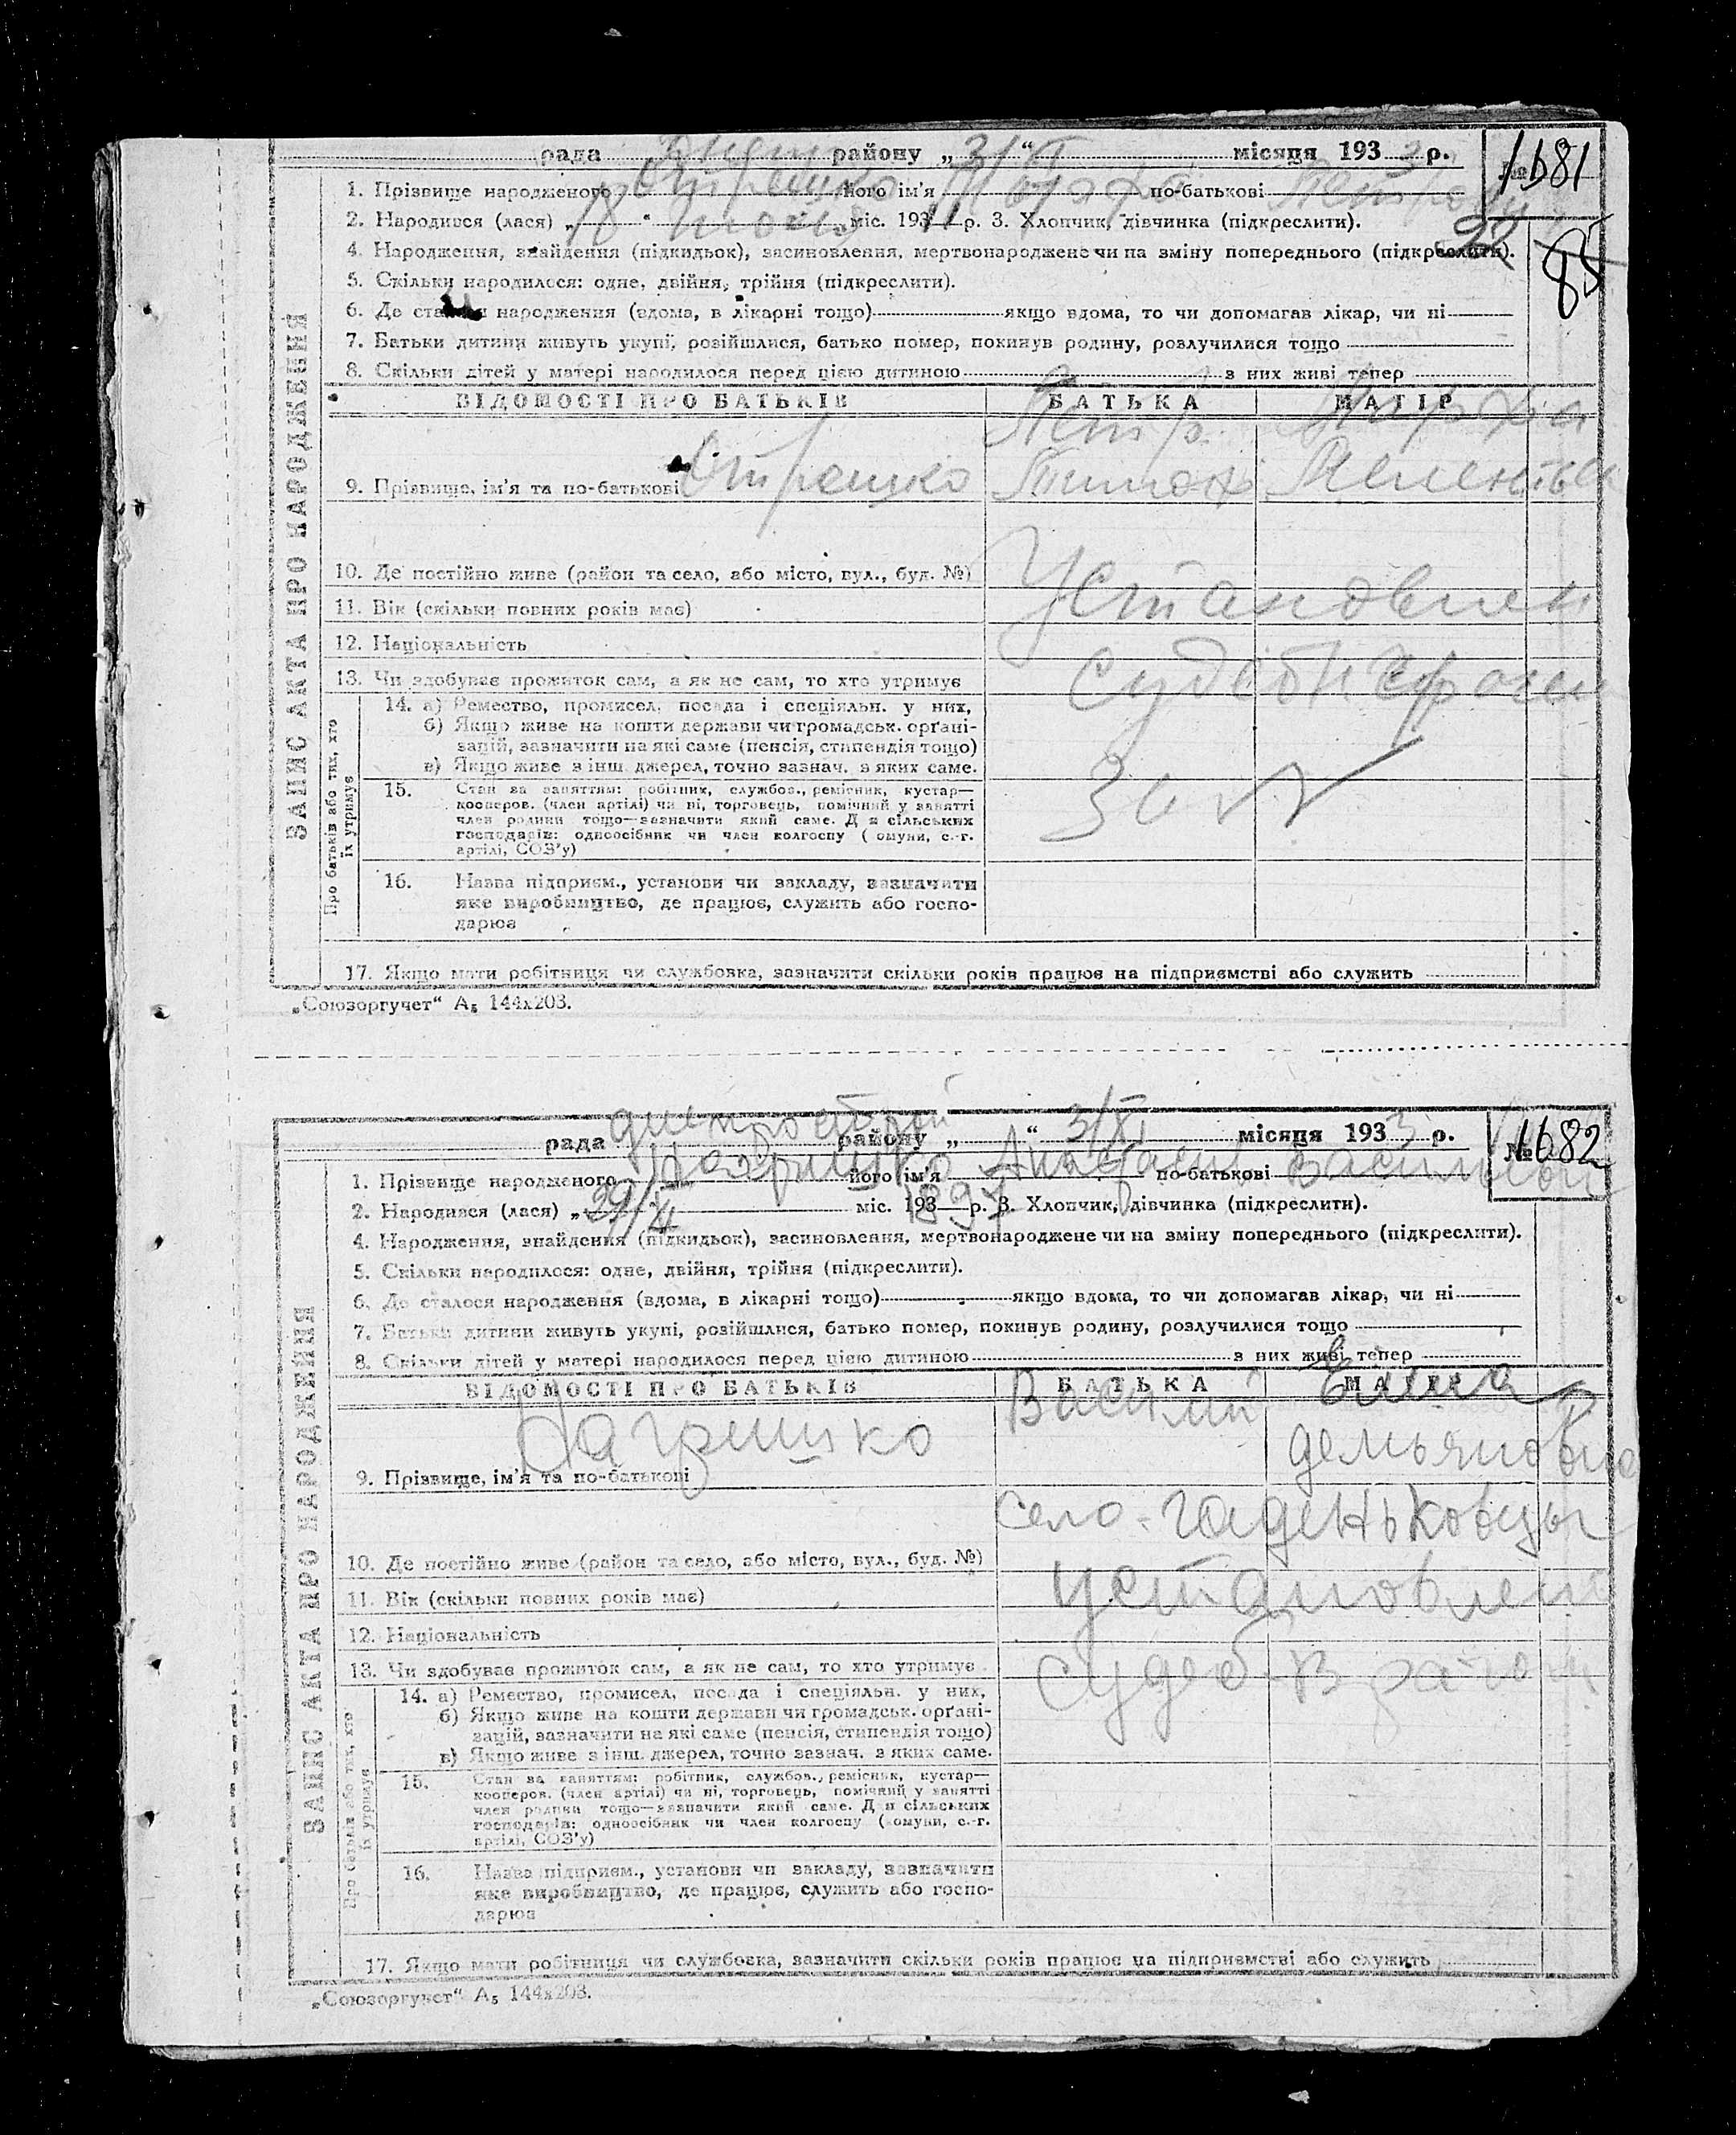 рада Днепр району „ 3/XI “ місяця 1933 р.
№ 1681
1. Прізвище народженого його ім'я по-батькові
2. Народився (лася) „ “ міс. 193 р. 3. Хлопчик, дівчинка (підкреслити).
22
85
4. Народження, знайдення (підкидьок), засиновлення, мертвонароджене чи на зміну попереднього (підкреслити).
5. Скільки народилося: одне, двійня, трійня (підкреслити).
6. Де сталося народження (вдома, в лікарні тощо) якщо вдома, то чи допомагав лікар, чи ні
7. Батьки дитини живуть укупі, розійшлися, батько помер, покинув родину, розлучилися тощо
8. Скільки дітей у матері народилося перед цією дитиною з них живі тепер
ЗАПИС АКТА ПРО НАРОДЖЕННЯ
ВІДОМОСТІ ПРО БАТЬКІВ БАТЬКА МАТІР
Петр
9. Прізвище, ім'я та по-батькові
10. Де постійно живе (район та село, або місто, вул., буд. №)
Установлен
11. Вік (скільки повних років має)
12. Національність
судебн врачем
13. Чи здобуває прожиток сам, а як не сам, то хто утримує
Про батьків або тих, хто їх утримує
14. а) Ремество, промисел, посада і спеціяльн. у них,
б) Якщо живе на кошти держави чи громадськ. орґані-
зацій, зазначити на які саме (пенсія, стипендія тощо)
в) Якщо живе з інш. джерел, точно зазнач. з яких саме.
15. Стан за заняттям: робітник, службов., ремісник, кустар—
кооперов. (член артілі) чи ні, торговець, помічний у занятті
член родини тощо—зазначити який саме. Для сільських
господарів: одноосібник чи член колгоспу (комуни, с.-г.
артілі, СОЗ'у)
16. Назва підприєм., установи чи закладу, зазначити
яке виробництво, де працює, служить або госпо-
дарює
17. Якщо мати робітниця чи службовка, зазначити скільки років працює на підприємстві або служить
„Союзоргучет“ А₅ 144х203.
рада Днепрострой району „ “ 3/XI місяця 1933 р.
№ 1682
1. Прізвище народженого його ім'я по-батькові
2. Народився (лася) „ 29/XI міс. 193 1897 р. 3. Хлопчик, дівчинка (підкреслити).
4. Народження, знайдення (підкидьок), засиновлення, мертвонароджене чи на зміну попереднього (підкреслити).
5. Скільки народилося: одне, двійня, трійня (підкреслити).
6. Де сталося народження (вдома, в лікарні тощо) якщо вдома, то чи допомагав лікар, чи ні
7. Батьки дитини живуть укупі, розійшлися, батько помер, покинув родину, розлучилися тощо
8. Скільки дітей у матері народилося перед цією дитиною з них живі тепер
ЗАПИС АКТА ПРО НАРОДЖЕННЯ
ВІДОМОСТІ ПРО БАТЬКІВ БАТЬКА МАТІР
Василий
9. Прізвище, ім'я та по-батькові демьяновна
село-гаденьковцы
10. Де постійно живе (район та село, або місто, вул., буд. №)
установлен
11. Вік (скільки повних років має)
12. Національність
судеб-врачом
13. Чи здобуває прожиток сам, а як не сам, то хто утримує
Про батьків або тих, хто їх утримує
14. а) Ремество, промисел, посада і спеціяльн. у них,
б) Якщо живе на кошти держави чи громадськ. орґані-
зацій, зазначити на які саме (пенсія, стипендія тощо)
в) Якщо живе з інш. джерел, точно зазнач. з яких саме.
15. Стан за заняттям: робітник, службов., ремісник, кустар—
кооперов. (член артілі) чи ні, торговець, помічний у занятті
член родини тощо—зазначити який саме. Для сільських
господарів: одноосібник чи член колгоспу (комуни, с.-г.
артілі, СОЗ'у)
16. Назва підприєм., установи чи закладу, зазначити
яке виробництво, де працює, служить або госпо-
дарює
17. Якщо мати робітниця чи службовка, зазначити скільки років працює на підприємстві або служить
„Союзоргучет“ А₅ 144х203.